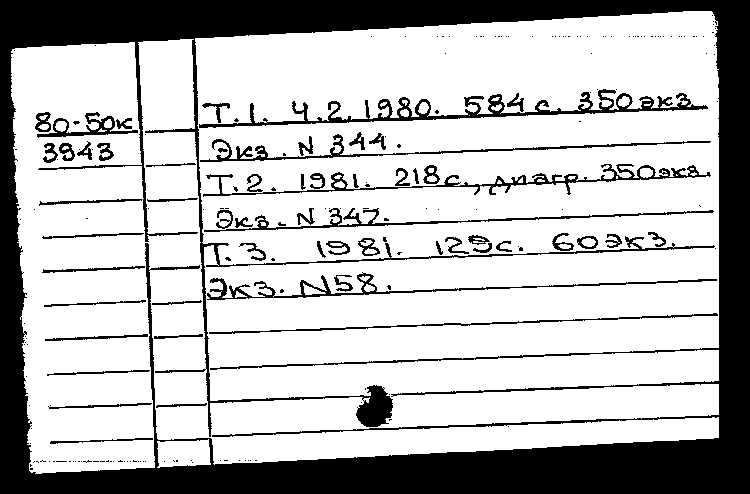 80-50к
3943
Т.1. Ч.2. 1980. 584 с. 350 экз
Экз. N 344.
Т.2. 1981. 218 с., диагр. 350 экз.
Экз. N 347.
Т.3. 1981. 129 с. 60 экз.
Экз. N 58.